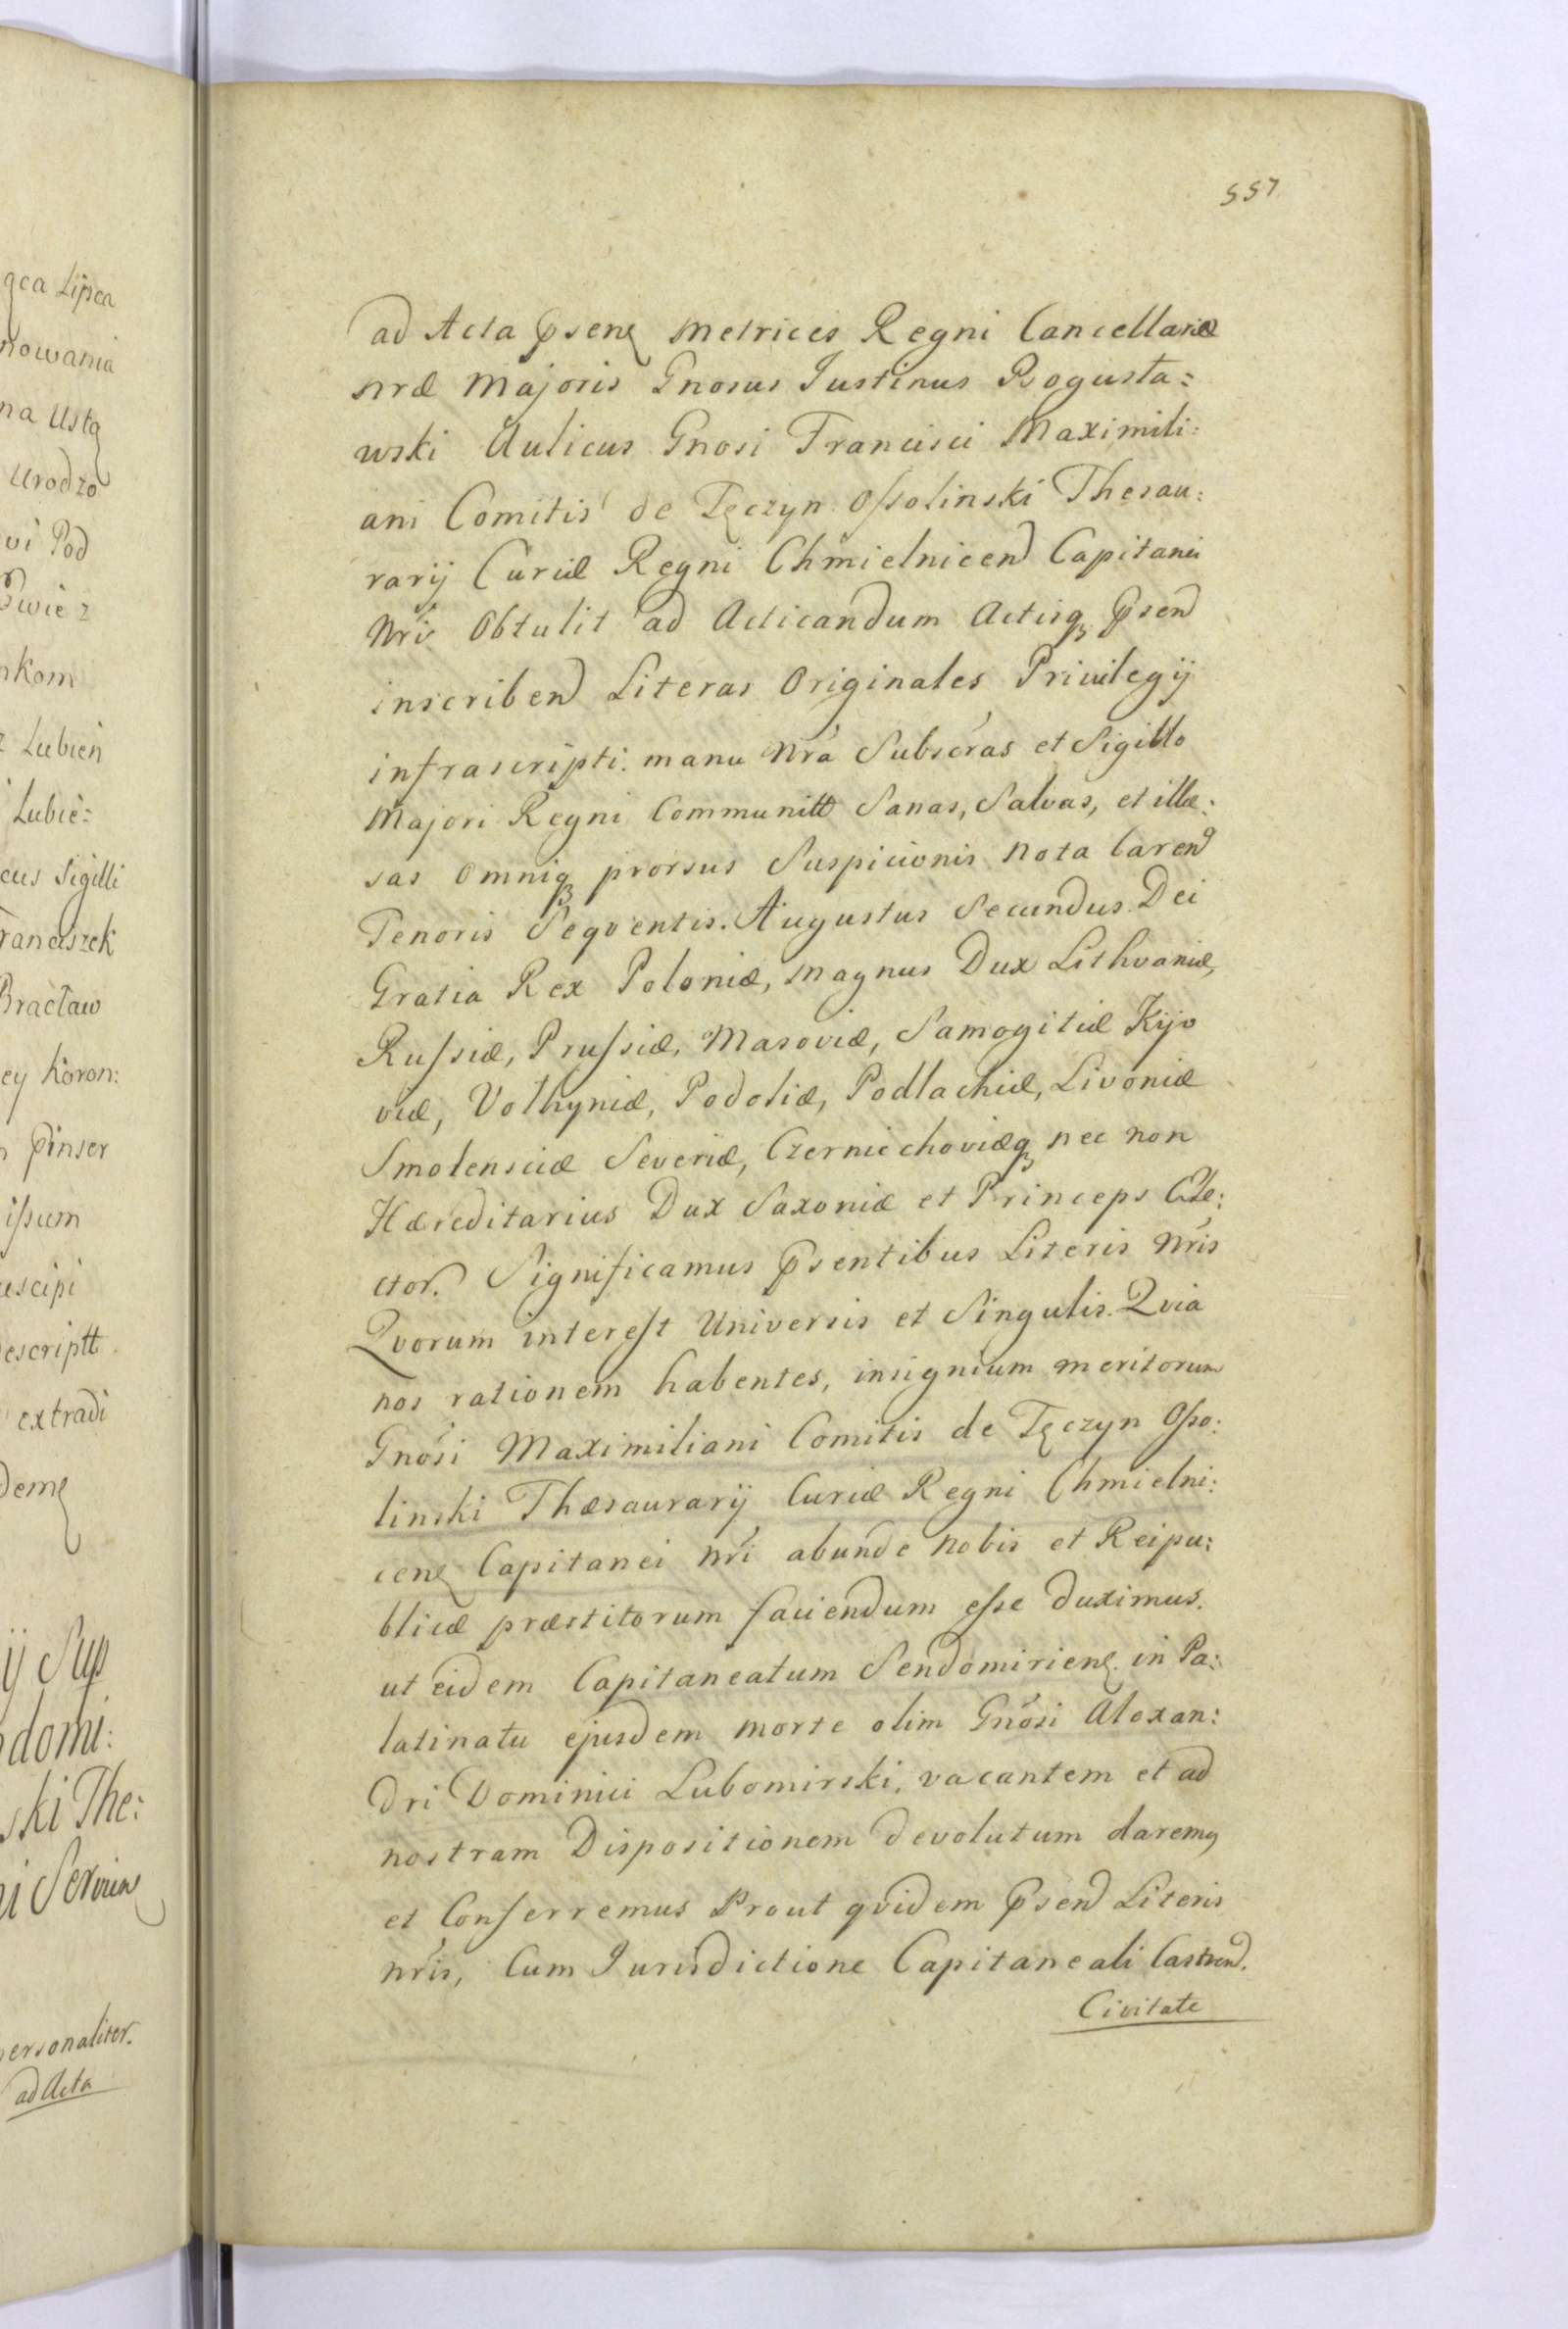 557
ad Acta pseng Metrices Regni Cancellariæ
nræ Majoris Gnosus Iustinus Bogusta:
wski Aulicus Gnosi Francisci Maximili:
ani Comitis de Tęczyn Ossolinski Thesau:
rarij Curiæ Regni Chmielnicen Capitanei
Nri Obtulit ad Acticandum Actisq psen
inscriben Literas Originales Privilegij
infrascripti. manu Nra Subscras et Sigillo
Majori Regni Communitt Sanas, Salvas, et illæ:
sas Omniq prorsus Suspicionis nota Caren
Tenoris Seqventis. Augustus Secundus Dei
Gratia Rex Poloniæ, Magnus Dux Lithvaniæ,
Russiæ, Prussiæ, Masoviæ, Samogitiæ Kijo
viæ, Volhyniæ, Podoliæ, Podlachiæ, Livoniæ
Smolensciæ Severiæ, Czerniechoviæq nec non
Hæreditarius Dux Saxoniæ et Princeps Ele:
ctor. Significamus psentibus Literis Nris
Qvorum interest Universis et Singulis. Qvia
nos rationem habentes, insignium meritorum
Gnosi Maximiliani Comitis de Tęczyn Osso:
linski Thæsaurarij Curiæ Regni Chmielni:
ceng Capitanei nri abunde nobis et Reipu:
blicæ præstitorum faciendum esse duximus.
ut eidem Capitaneatum Sendomirieng. in Pa:
latinatu ejusdem morte olim Gnosi Alexan:
dri Dominici Lubomirski. vacantem et ad
nostram Dispositionem devolutum daremg
et Conferremus Prout qvidem psen Literis
nris, Cum Iurisdictione Capitaneali Castren.
Civitate
gca Lipca
nowania
na Ustą
Urodzo
vi Pod
Swie z
nkom
z Lubien
Lubie:
cus Sigilli
Franciszek
Bracław
ey Koron:
pinser
issum
uscipi
escriptt
extradi
deme
ij Sup
domi:
ski The:
i Serviens
personaliter.
ad Acta